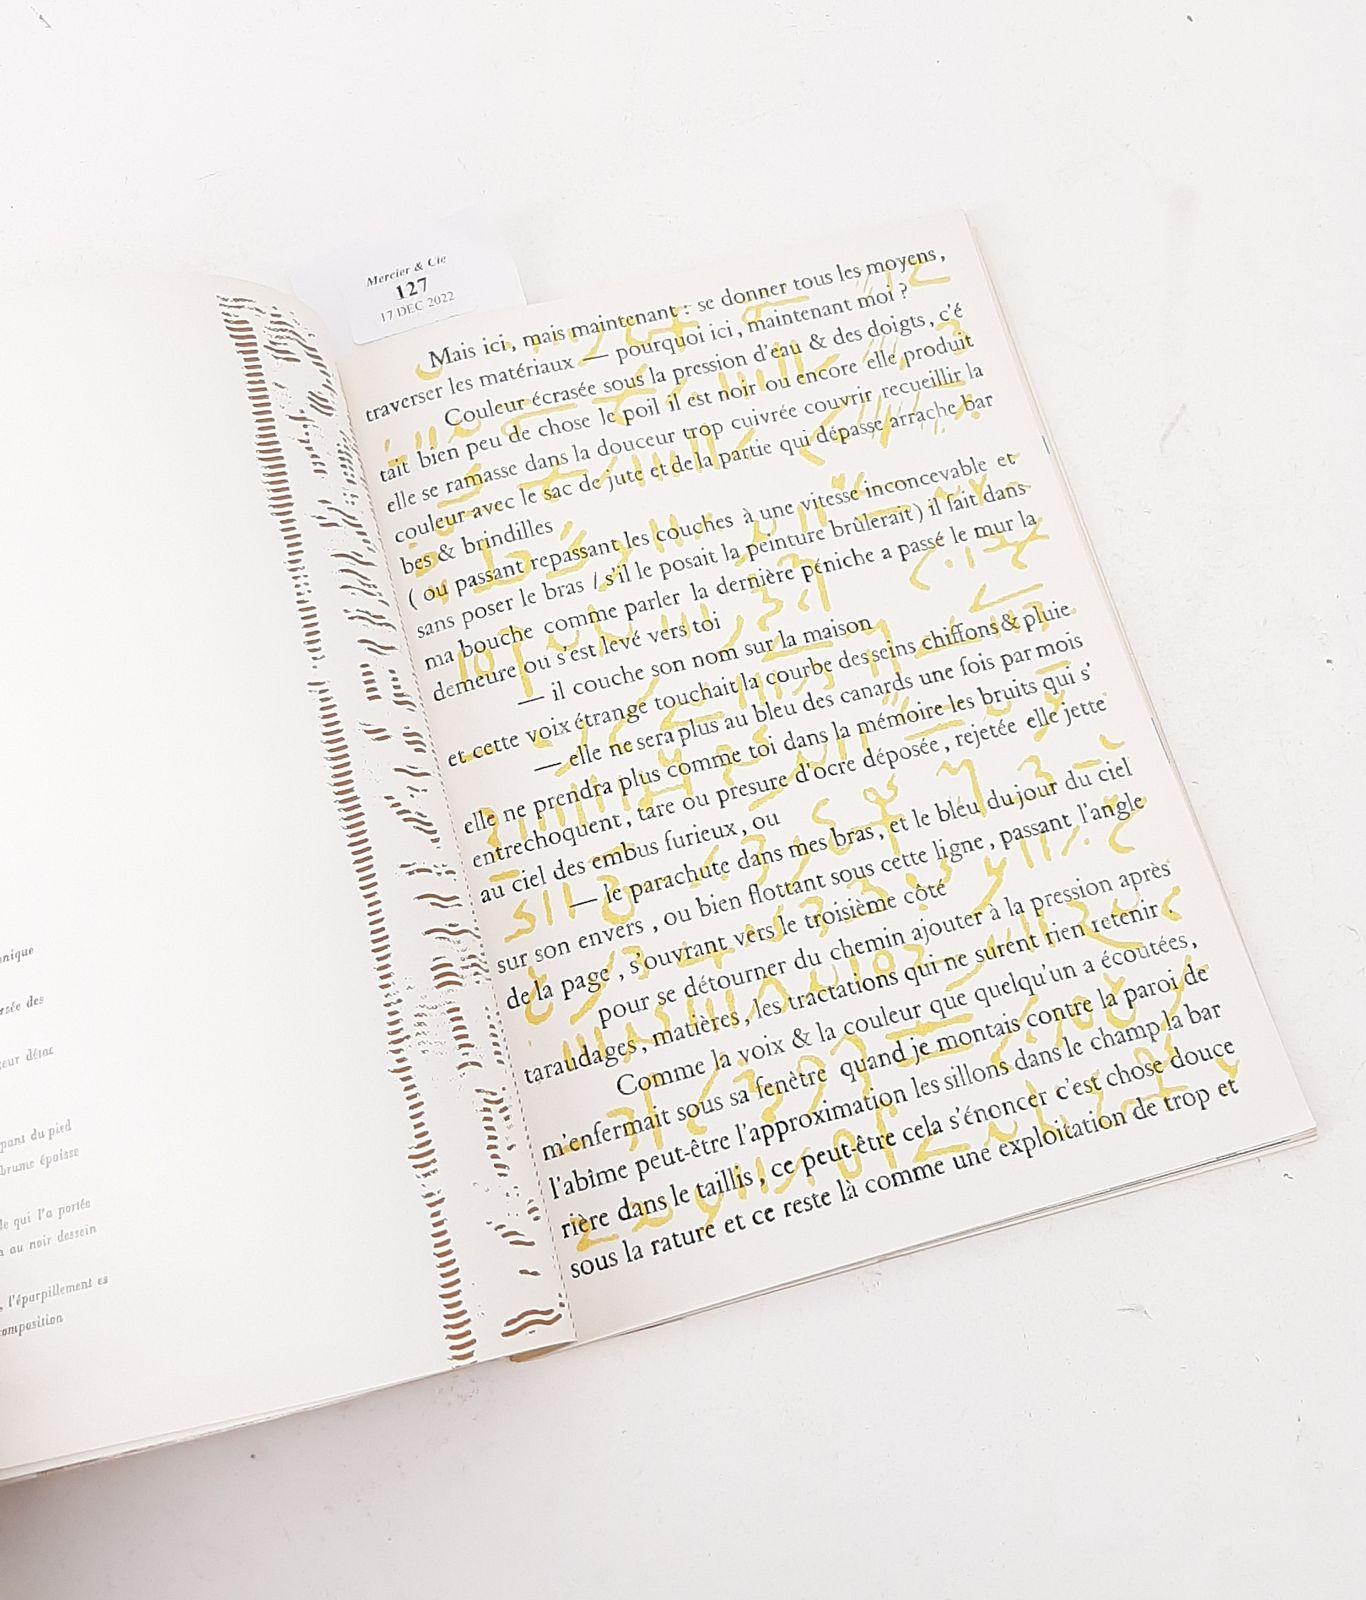 nique
rsée des
eur détac
pant du pied
brume épaisse
le qui l'a portée
a au noir dessein
, l'éparpillement es
omposition
Mercier & Cie
127
17 DEC 2022
Mais ici, mais maintenant : se donner tous les moyens,
traverser les matériaux — pourquoi ici, maintenant moi ?
Couleur écrasée sous la pression d'eau & des doigts, c'é
tait bien peu de chose le poil il est noir ou encore elle produit
elle se ramasse dans la douceur trop cuivrée couvrir recueillir la
couleur avec le sac de jute et de la partie qui dépasse arrache bar
bes & brindilles
( ou passant repassant les couches à une vitesse inconcevable et
sans poser le bras / s'il le posait la peinture brûlerait ) il fait dans
ma bouche comme parler la dernière péniche a passé le mur la
demeure ou s'est levé vers toi
— il couche son nom sur la maison
et cette voix étrange touchait la courbe des seins chiffons & pluie
— elle ne sera plus au bleu des canards une fois par mois
elle ne prendra plus comme toi dans la mémoire les bruits qui s'
entrechoquent, tare ou presure d'ocre déposée, rejetée elle jette
au ciel des embus furieux, ou
— le parachute dans mes bras, et le bleu du jour du ciel
sur son envers, ou bien flottant sous cette ligne, passant l'angle
de la page, s'ouvrant vers le troisième côté
pour se détourner du chemin ajouter à la pression après
taraudages, matières, les tractations qui ne surent rien retenir.
Comme la voix & la couleur que quelqu'un a écoutées,
m'enfermait sous sa fenêtre quand je montais contre la paroi de
l'abîme peut-être l'approximation les sillons dans le champ la bar
rière dans le taillis, ce peut-être cela s'énoncer c'est chose douce
sous la rature et ce reste là comme une exploitation de trop et